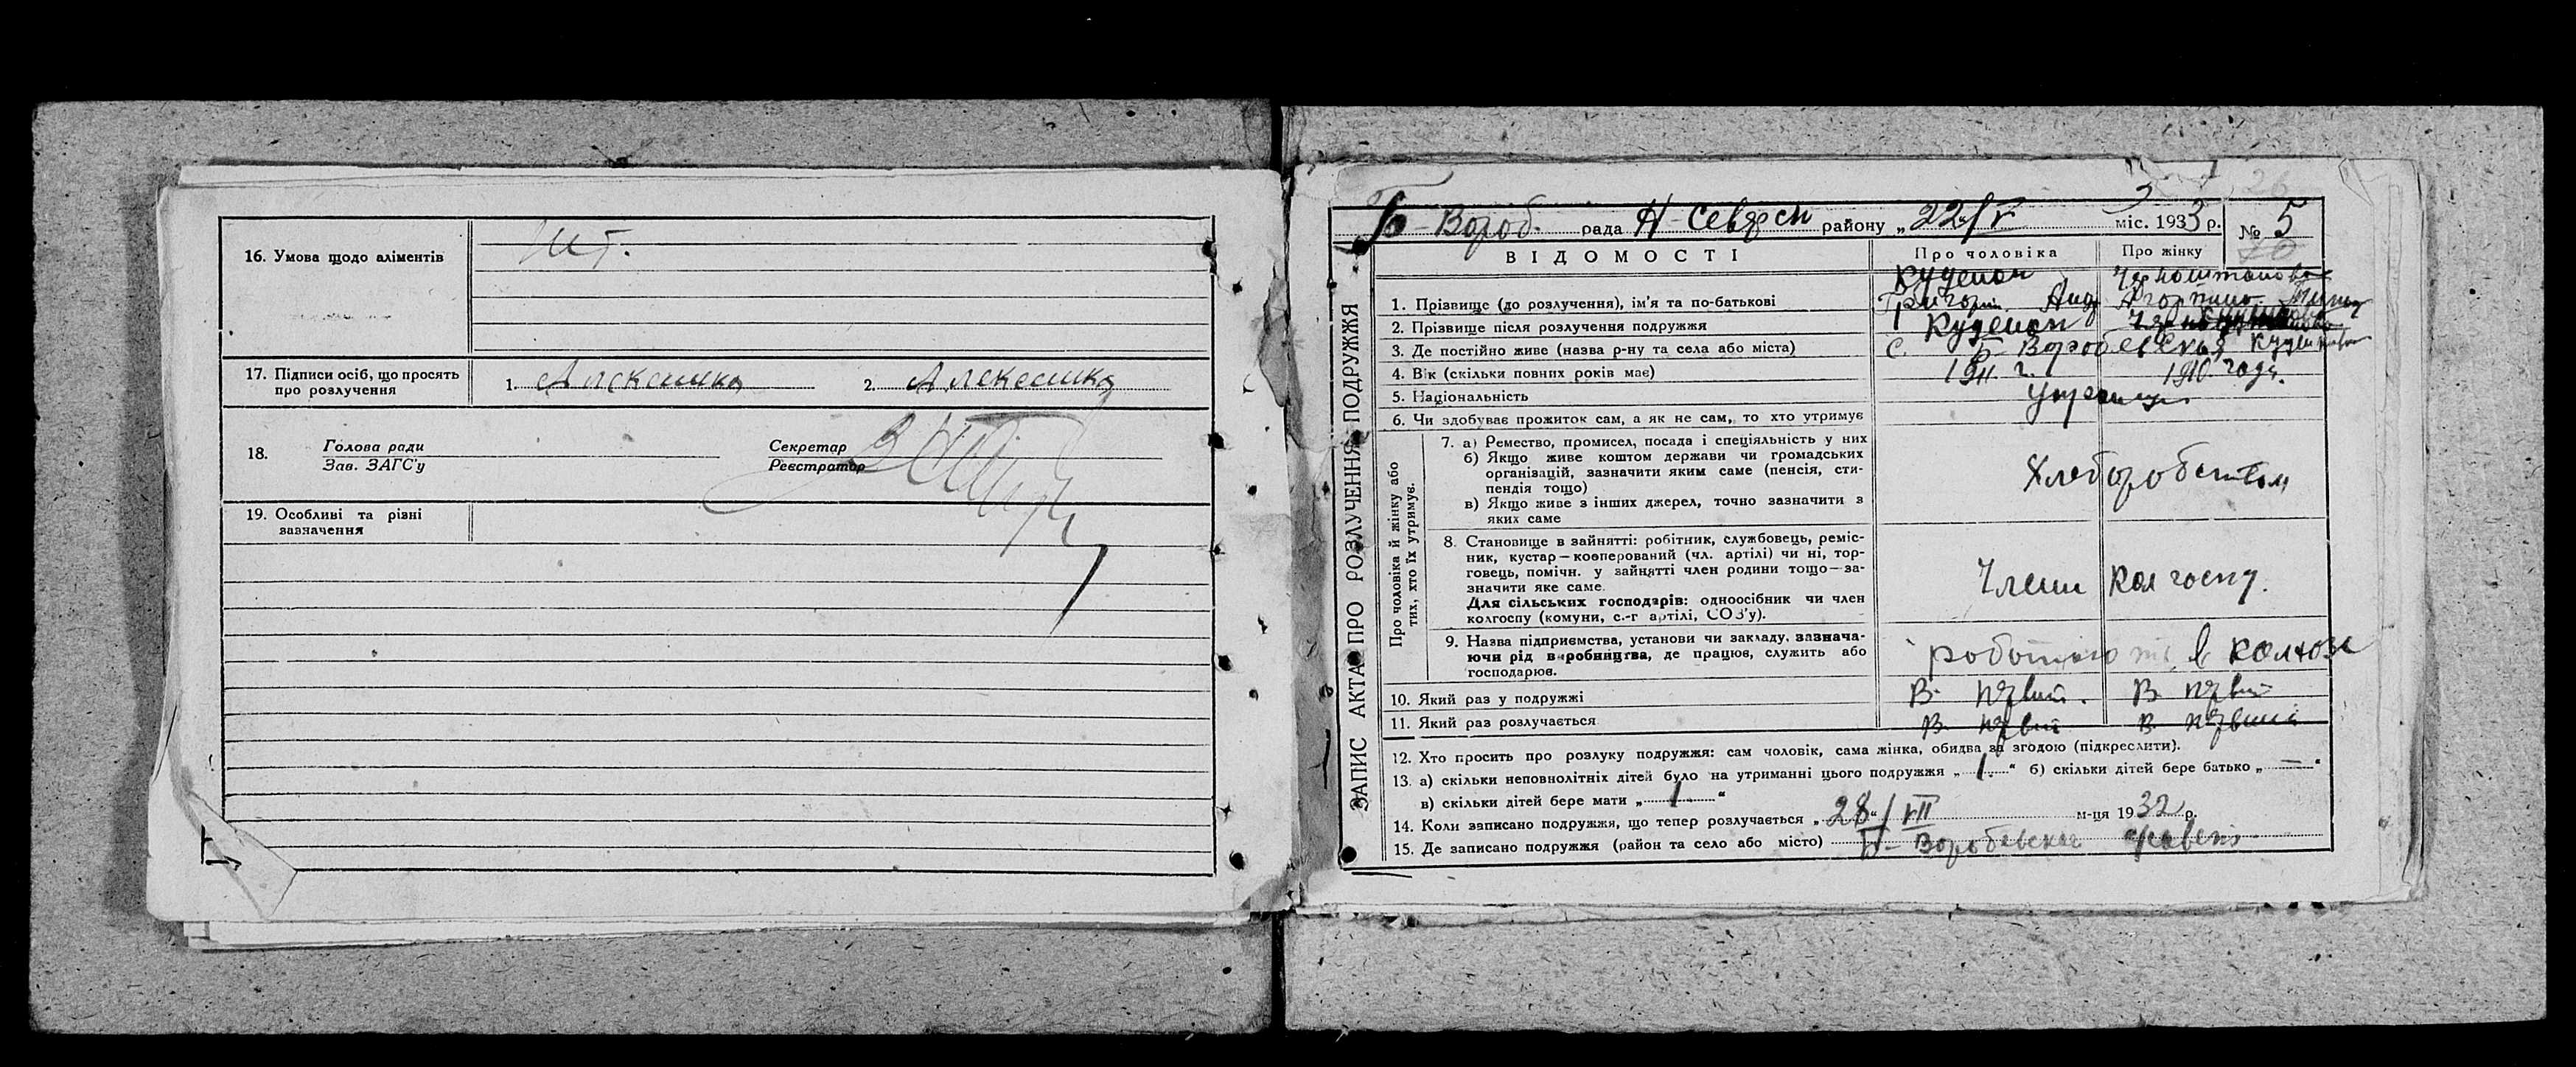 16. Умова щодо аліментів
17. Підписи осіб, що просять
про розлучення
1. Алексенко 2. Алексенко
18. Голова ради
Зав. ЗАГС'у
Секретар
Реєстратор
19. Особливі та різні
зазначення
ЗАПИС АКТА ПРО РОЗЛУЧЕННЯ ПОДРУЖЖЯ
Б-Вороб. рада Н-Северск району „22/V міс. 1933 р. № 5
ВІДОМОСТІ
Про чоловіка
Про жінку
1. Прізвище (до розлучення), ім'я та по-батькові
Григорий Анд
2. Прізвище після розлучення подружжя
3. Де постійно живе (назва р-ну та села або міста) с. Б-Воробевська
4. Вік (скільки повних років має) 1911 г. 1910 года.
5. Національність Украинцы
6. Чи здобуває прожиток сам, а як не сам, то хто утримує
Про чоловіка й жінку або
тих, хто їх утримує.
7. а) Ремество, промисел, посада і спеціяльність у них
б) Якщо живе коштом держави чи громадських
організацій, зазначити яким саме (пенсія, сти-
пендія тощо)
в) Якщо живе з інших джерел, точно зазначити з
яких саме
Хлеборобством
8. Становище в зайнятті: робітник, службовець, реміс-
ник, кустар—кооперований (чл. артілі) чи ні, тор-
говець, помічн. у зайнятті член родини тощо—за-
значити яке саме.
Для сільських господарів: одноосібник чи член
колгоспу (комуни, с.-г артілі, СОЗ'у).
Члени колгоспу.
9. Назва підприємства, установи чи закладу, зазнача-
ючи рід виробництва, де працює, служить або
господарює.
в колхозе
10. Який раз у подружжі В- первий. В- первий
11. Який раз розлучається В- первий В- первий
12. Хто просить про розлуку подружжя: сам чоловік, сама жінка, обидва за згодою (підкреслити).
13. а) скільки неповнолітніх дітей було на утриманні цього подружжя „ 1 “ б) скільки дітей бере батько „ — “
в) скільки дітей бере мати „ 1 “
14. Коли записано подружжя, що тепер розлучається „ 28 “ / VII м-ця 1932 р.
15. Де записано подружжя (район та село або місто) Б- Воробевская